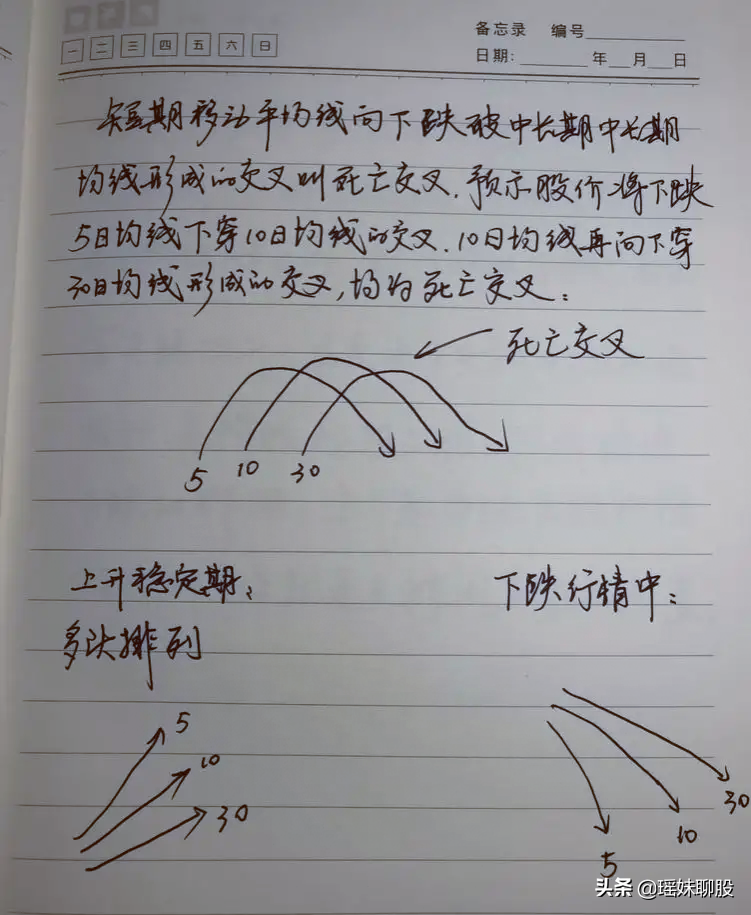 备忘录 编号
一 二 三 四 五 六 日
日期: 年 月 日
短期移动平均线向下跌破中长期中长期
均线形成的交叉叫死亡交叉.预示股价将下跌
5日均线下穿10日均线的交叉.10日均线再向下穿
30日均线形成的交叉,均为死亡交叉:
死亡交叉
5 10 30
上升稳定期、
下跌行情中:
多头排列
5
10
30
30
10
5
头条 @瑶妹聊股